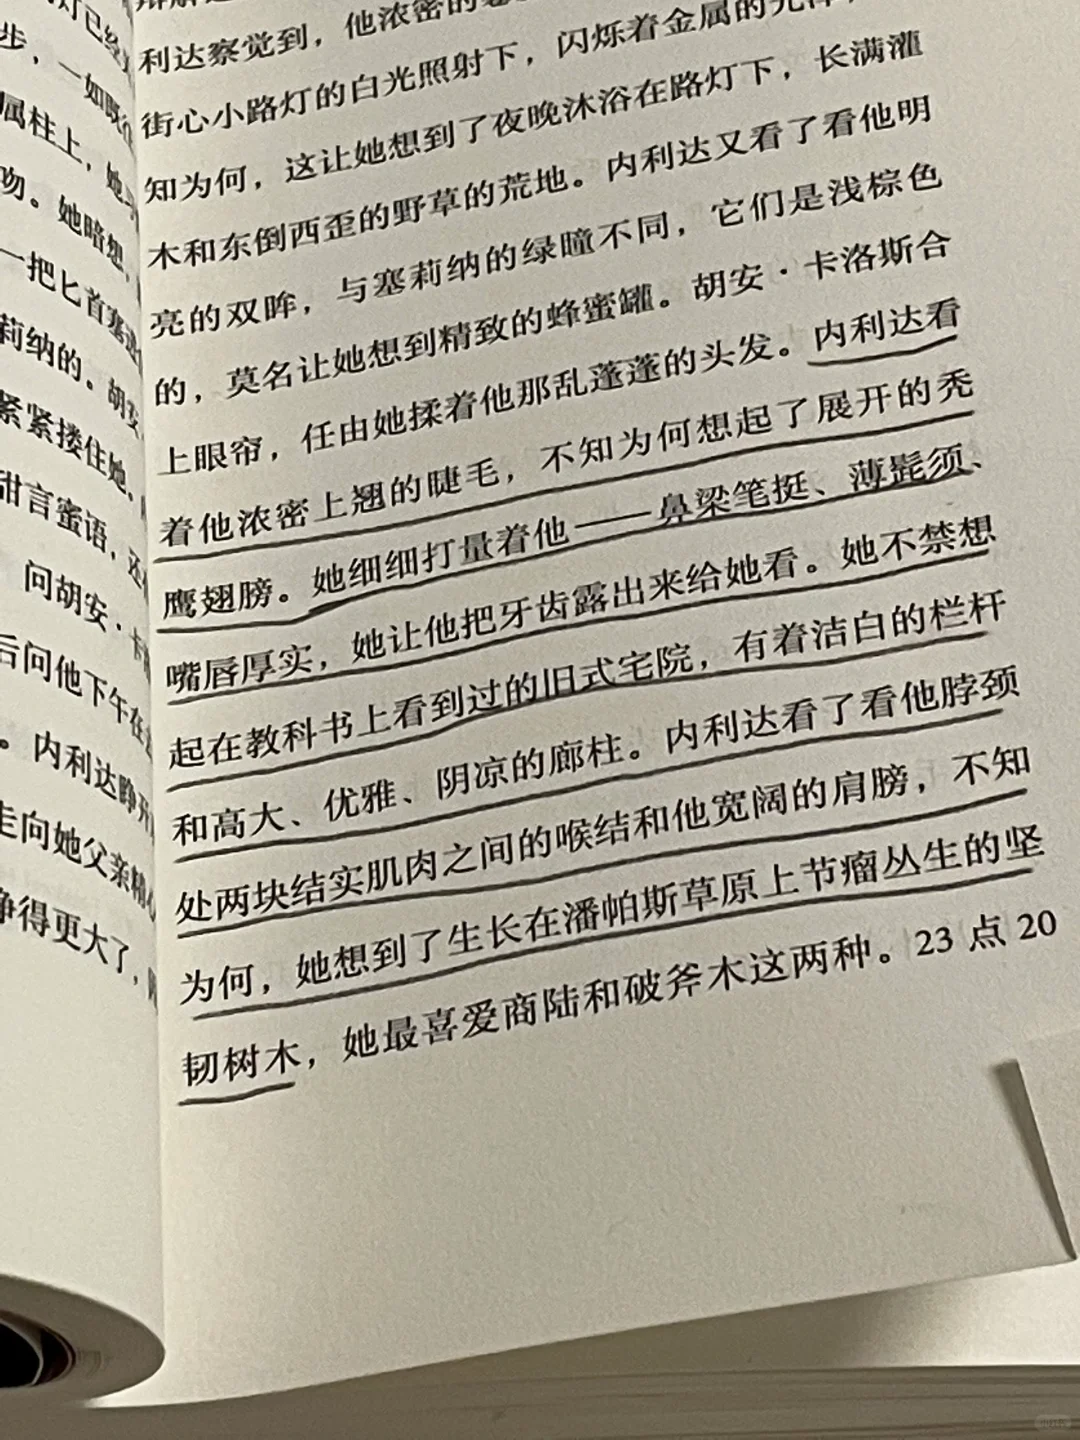 灯已经
步，一如既往
属柱上，她
吻。她暗想，
一把匕首塞进
莉纳的。胡安
紧紧搂住她。
甜言蜜语，还
问胡安·卡
后问他下午在
。内利达睁开
走向她父亲精心
睁得更大了，
利达察觉到，他浓密的
街心小路灯的白光照射下，闪烁着金属的光泽，
知为何，这让她想到了夜晚沐浴在路灯下，长满灌
木和东倒西歪的野草的荒地。内利达又看了看他明
亮的双眸，与塞莉纳的绿瞳不同，它们是浅棕色
的，莫名让她想到精致的蜂蜜罐。胡安·卡洛斯合
上眼帘，任由她揉着他那乱蓬蓬的头发。内利达看
着他浓密上翘的睫毛，不知为何想起了展开的秃
鹰翅膀。她细细打量着他——鼻梁笔挺、薄髭须、
嘴唇厚实，她让他把牙齿露出来给她看。她不禁想
起在教科书上看到过的旧式宅院，有着洁白的栏杆
和高大、优雅、阴凉的廊柱。内利达看了看他脖颈
处两块结实肌肉之间的喉结和他宽阔的肩膀，不知
为何，她想到了生长在潘帕斯草原上节瘤丛生的坚
韧树木，她最喜爱商陆和破斧木这两种。23 点 20